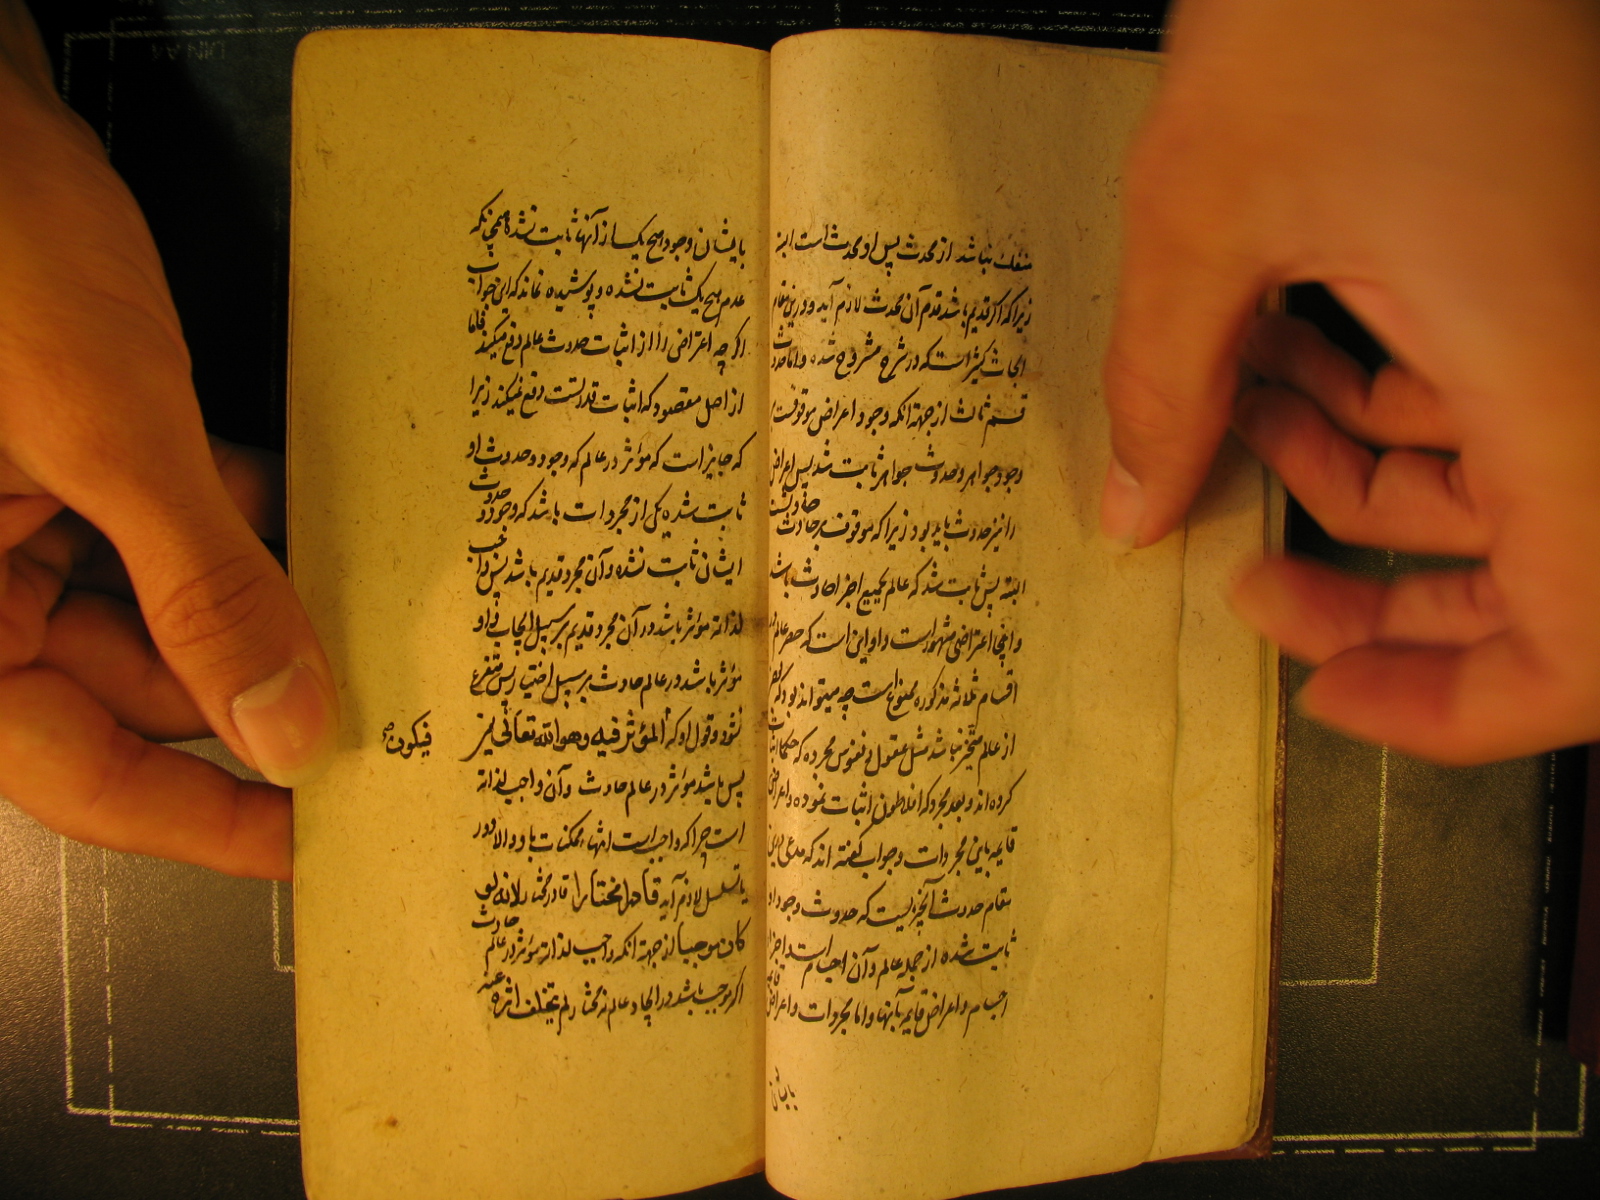 منفک نباشد از محدث پس او محدث است البته
زیرا که اگر قدیم باشد قدم آن محدث لازم آید و درین مقام
ابحاث کثیر است که در شرح مشروح شده و اما حدوث
قسم ثالث از جهة انکه وجود اعراض موقوفست بر
وجود جواهر و حدوث جواهر ثابت شد پس اعراض
را نیز حدوث باید بود زیرا که موقوف بر حادث حادثست
البته پس ثابت شد که عالم بجمیع اجزا حادث باشد
و اینجا اعتراضی مشهور است و او این است که حصر عالم در
اقسام ثلاثه مذکوره ممنوع است چه میتواند بود که بعضی
از عالم متحیز نباشد مثل عقول و نفوس مجرده که حکما اثبات
کرده اند و بعد مجرد که افلاطون اثبات نموده و اعراض
قایمه باین مجردات و جواب گفته اند که مدعی درین
مقام حدوث آنچیزیست که حدوث وجود او
ثابت شده از جمله عالم و آن اجسام است و اجزاء
اجسام و اعراض قایم بآنها و اما مجردات و اعراض قایمه
بایشان
بایشان وجود هیچ یک از آنها ثابت نشده همچنانکه
عدم هیچ یک ثابت نشده و پوشیده نماند که این جواب
اگر چه اعتراض را از اثبات حدوث عالم دفع میکند فاما
از اصل مقصود که اثبات قدرتست دفع نمیکند زیرا
که جایز است که مؤثر در عالم که وجود و حدوث او
ثابت شده یکی از مجردات باشد که وجود و حدوث
ایشان ثابت نشده و آن مجرد قدیم باشد پس واجب
لذاته مؤثر باشد در آن مجرد قدیم بر سبیل ایجاب و او
مؤثر باشد در عالم حادث بر سبیل اختیار پس متفرع
نشود و قول او که المؤثر فیه وهو الله تعالی نیز
فیکون صح
پس باشد مؤثر در عالم حادث و آن واجب لذاته
است چرا که واجب است انتهاء ممکنات باو والا دور
یا تسلسل لازم آید قادرا مختارا قادر مختار لانه لو
کان موجبا از جهة انکه واجب لذاته مؤثر در عالم حادث
اگر موجب باشد در ایجاد عالم نه مختار لم یتخلف اثره عنه